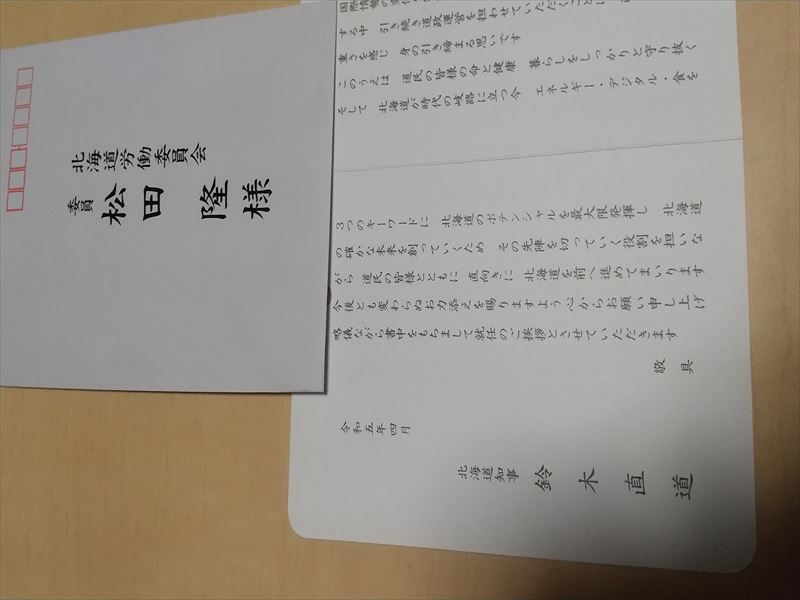 北海道労働委員会
委員 松田 隆様
国際情勢の
する中 引き続き道政運営を担わせていただくことに
重さを感じ 身の引き締まる思いです
このうえは 道民の皆様の命と健康 暮らしをしっかりと守り抜く
そして 北海道が時代の岐路に立つ今 エネルギー・デジタル・食を
3つのキーワードに 北海道のポテンシャルを最大限発揮し 北海道
の確かな未来を創っていくため その先陣を切っていく役割を担いな
がら 道民の皆様とともに 直向きに 北海道を前へ進めてまいります
今後とも変わらぬお力添えを賜りますよう心からお願い申し上げ
略儀ながら書中をもちまして就任のご挨拶とさせていただきます
敬具
令和五年四月
北海道知事 鈴木直道